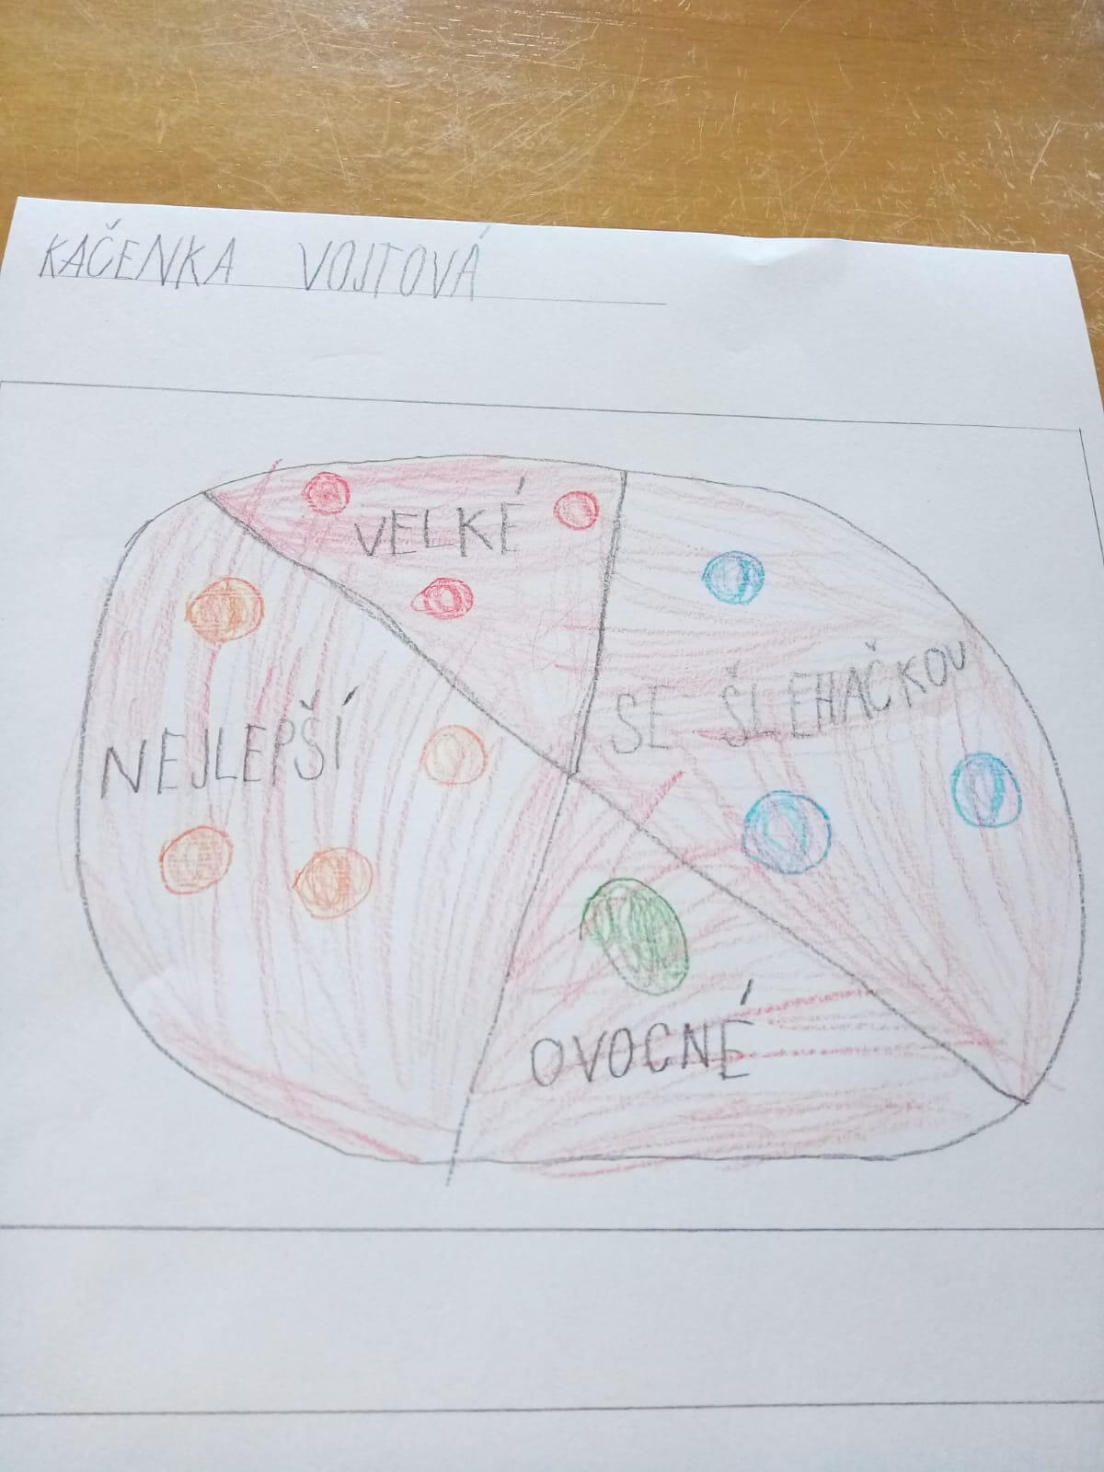 KAČENKA VOJTOVÁ
VELKÉ
SE ŠLEHAČKOU
NEJLEPŠÍ
OVOCNÉ